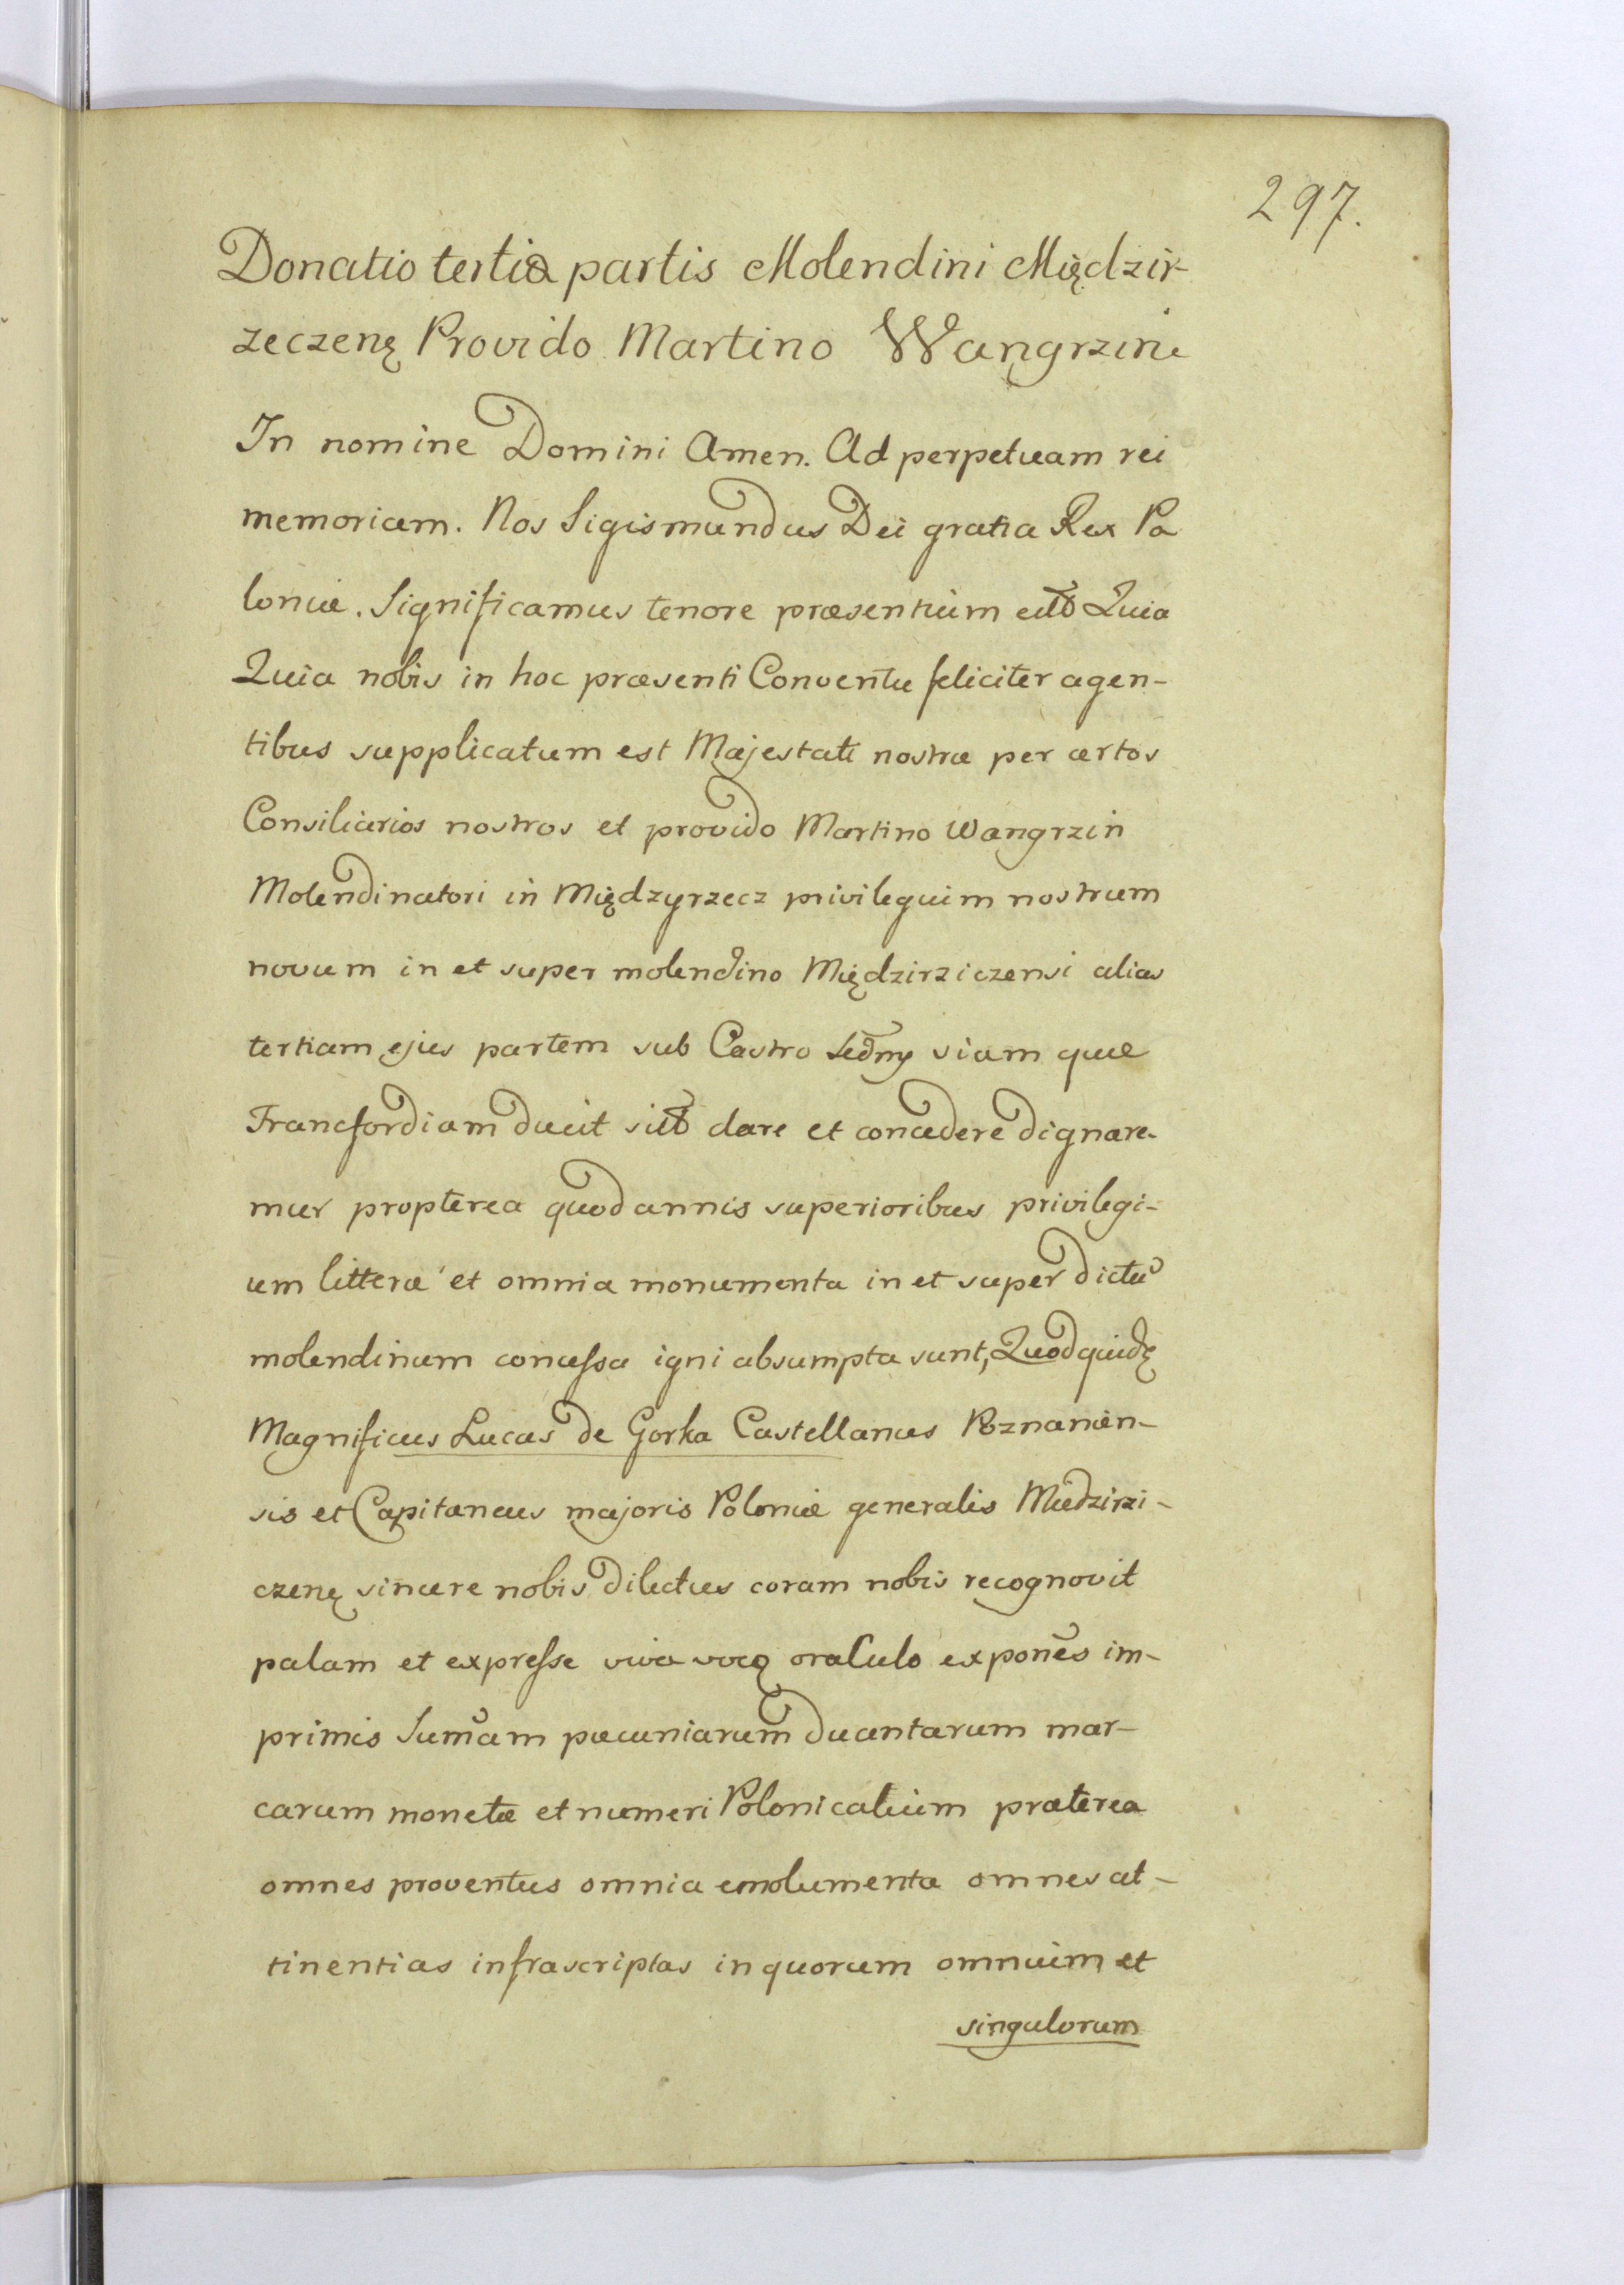 297.
Donatio tertiæ partis Molendini Międzir-
zeczenę Provido Martino Wangrzin
In nomine Domini Amen. Ad perpetuam rei
memoriam. Nos Sigismundus Dei gratia Rex Po
loniæ. Significamus tenore præsentium Quia
Quia nobis in hoc præsenti Conventu feliciter agen-
tibus supplicatum est Majestati nostræ per certos
Consiliarios nostros et provido Martino Wangrzin
Molendinatori in Międzyrzecz privilegium nostrum
novum in et super molendino Międzirziczensi alias
tertiam ejus partem sub Castro viam quæ
Francfordiam ducit dare et concedere dignare-
mur propterea quod annis superioribus privilegi-
um litteræ et omnia monumenta in et super dictũ
molendinum concessa igni absumpta sunt, Quodquidę
Magnificus Lucas de Gorka Castellanus Poznanien-
sis et Capitaneus majoris Poloniæ generalis Miedzirzi-
czenę sincere nobis dilectus coram nobis recognovit
palam et expresse viva oraculo exponẽs im-
primis Sum̃am pecuniarum ducentarum mar-
carum monetæ et numeri Polonicalium præterea
omnes proventus omnia emolumenta omnes at-
tinentias infrascriptas in quorum omnium et
singulorum